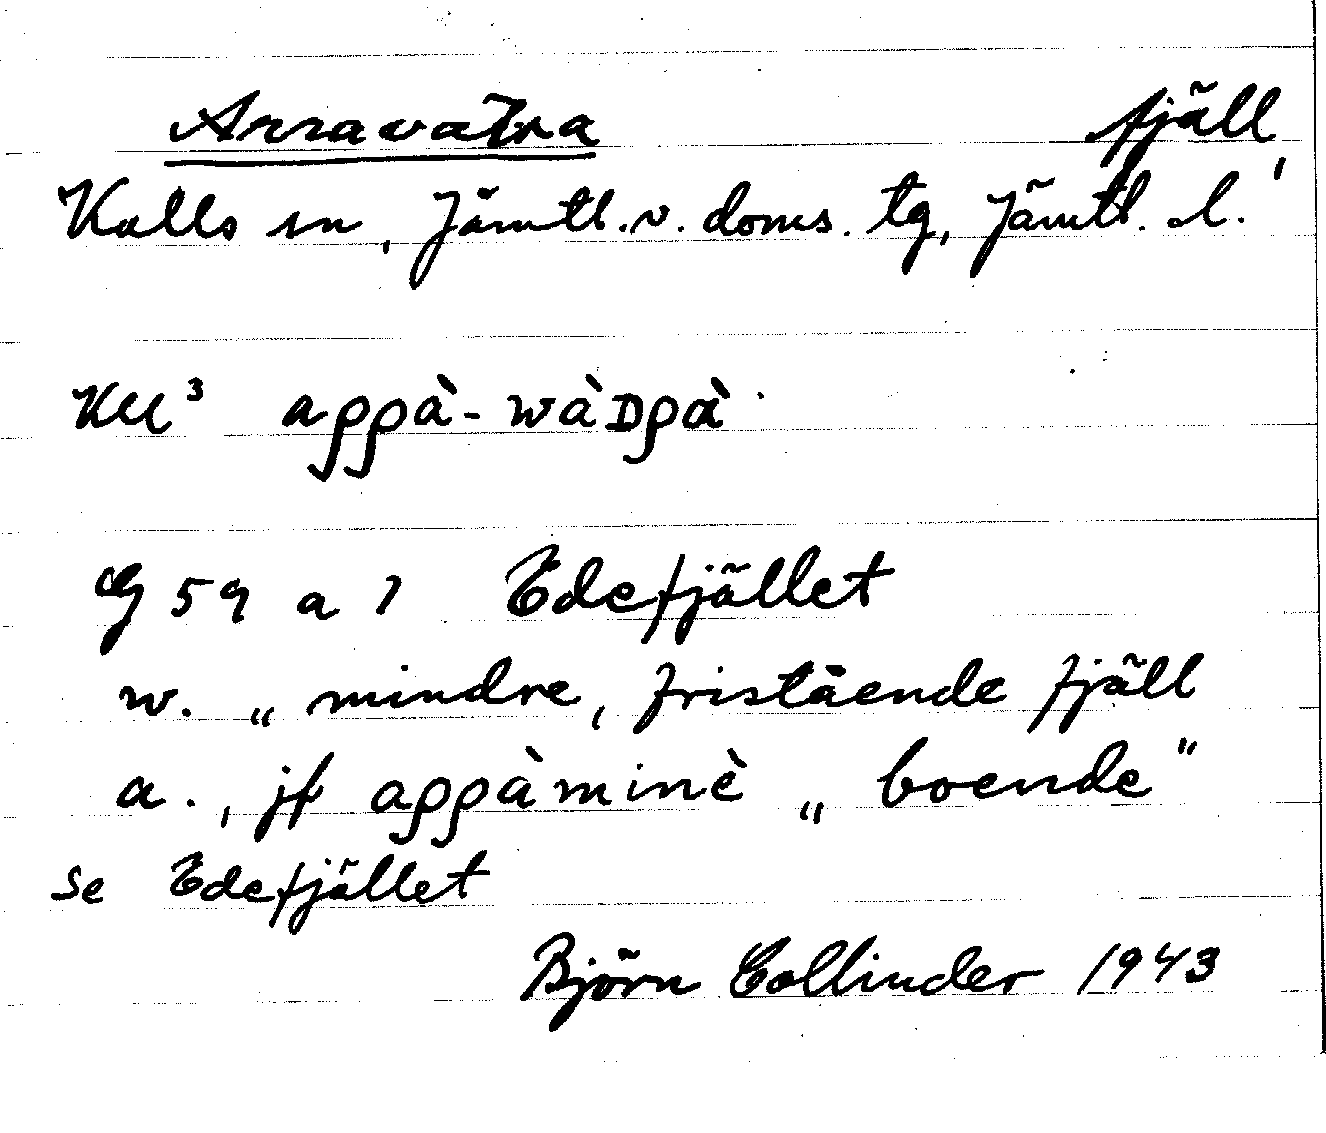 Arravatra fjäll
Kalls sn, Jämtl. v. doms. tg, Jämtl. l.
KU³ aρρà-wàDρà
G 59 a 1 Edefjället
w. „ mindre, fristående fjäll
a., jf aρρàminè „ boende"
se Edefjället
Björn Collinder 1943